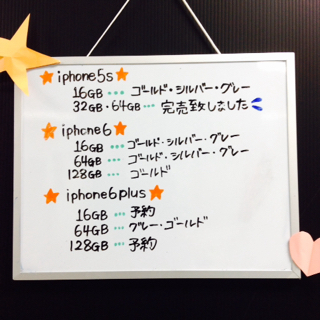 iphone5s
16GB … ゴールド・シルバー・グレー
32GB・64GB … 完売致しました
iphone6
16GB … ゴールド・シルバー・グレー
64GB … ゴールド・シルバー・グレー
128GB … ゴールド
iphone6plus
16GB … 予約
64GB … グレー・ゴールド
128GB … 予約